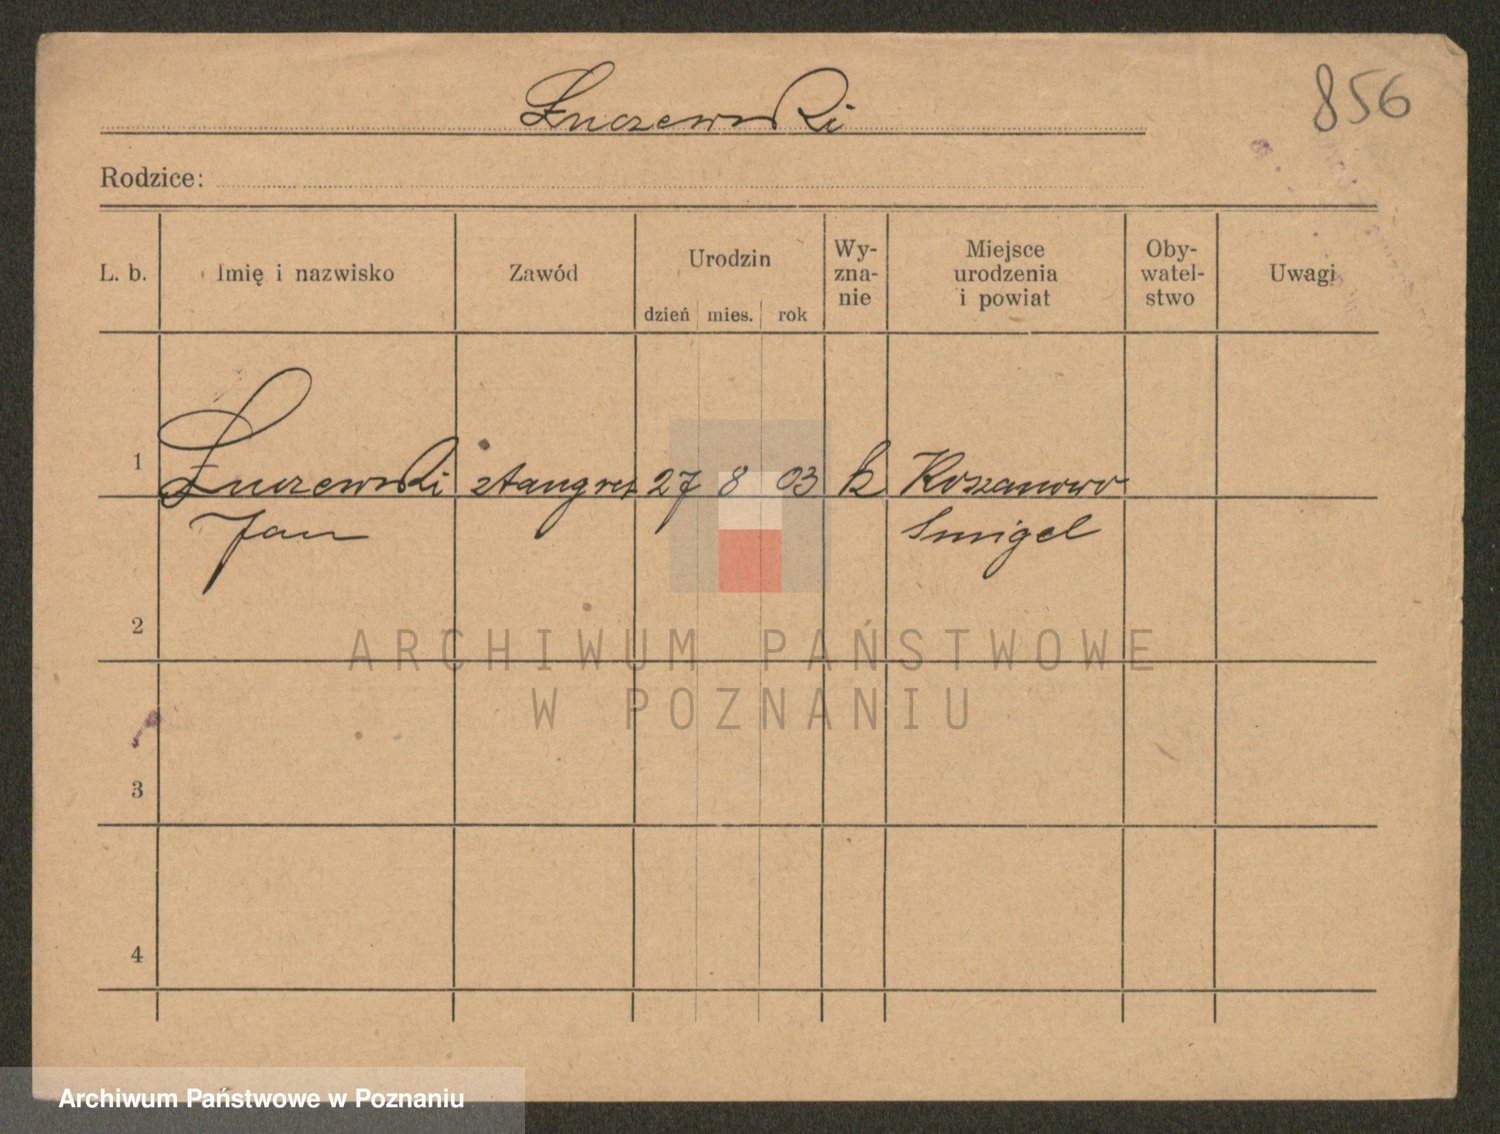 Żuczewski
856
Rodzice:
L. b. Imię i nazwisko Zawód Urodzin dzień mies. rok Wy-zna-nie Miejsce urodzenia i powiat Oby-watel-stwo Uwagi
1 Żuczewski stangret 27 8 03 k Koszanowo
Jan Smigel
2
ARCHIWUM PAŃSTWOWE
W POZNANIU
3
4
Archiwum Państwowe w Poznaniu